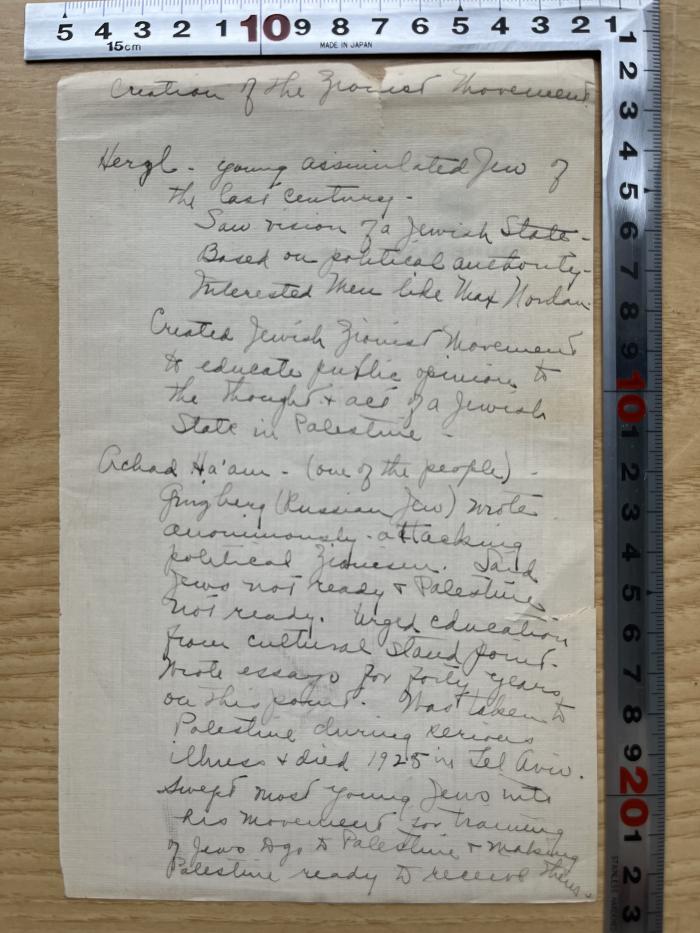 5 4 3 2 1 10 9 8 7 6 5 4 3 2 1
15cm
MADE IN JAPAN
1 2 3 4 5 6 7 8 9 10 1 2 3 4 5 6 7 8 9 20 1 2 3
Creation of the Zionist Movement
Herzl - young assimilated Jew of
the last century -
Saw vision of a Jewish State -
Based on political authority -
Interested Men like Max Nordau
Created Jewish Zionist Movement
to educate public opinion to
the thought + act of a Jewish
State in Palestine -
Achad Ha'am - (one of the people) -
Ginzberg (Russian Jew) wrote
anonimously - attacking
political Zionism. Said
Jews not ready + Palestine
not ready. Urged education
from cultural stand point.
Wrote essays for forty years
on this point. Was taken to
Palestine during serious
illness + died 1925 in Tel Aviv.
Swept most young Jews into
his movement for training
of Jews to go to Palestine + making
Palestine ready to receive them.